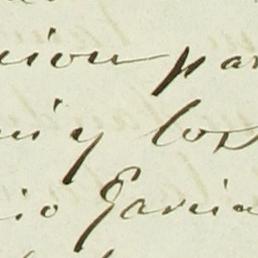 nion par
ni y los
io Garcia